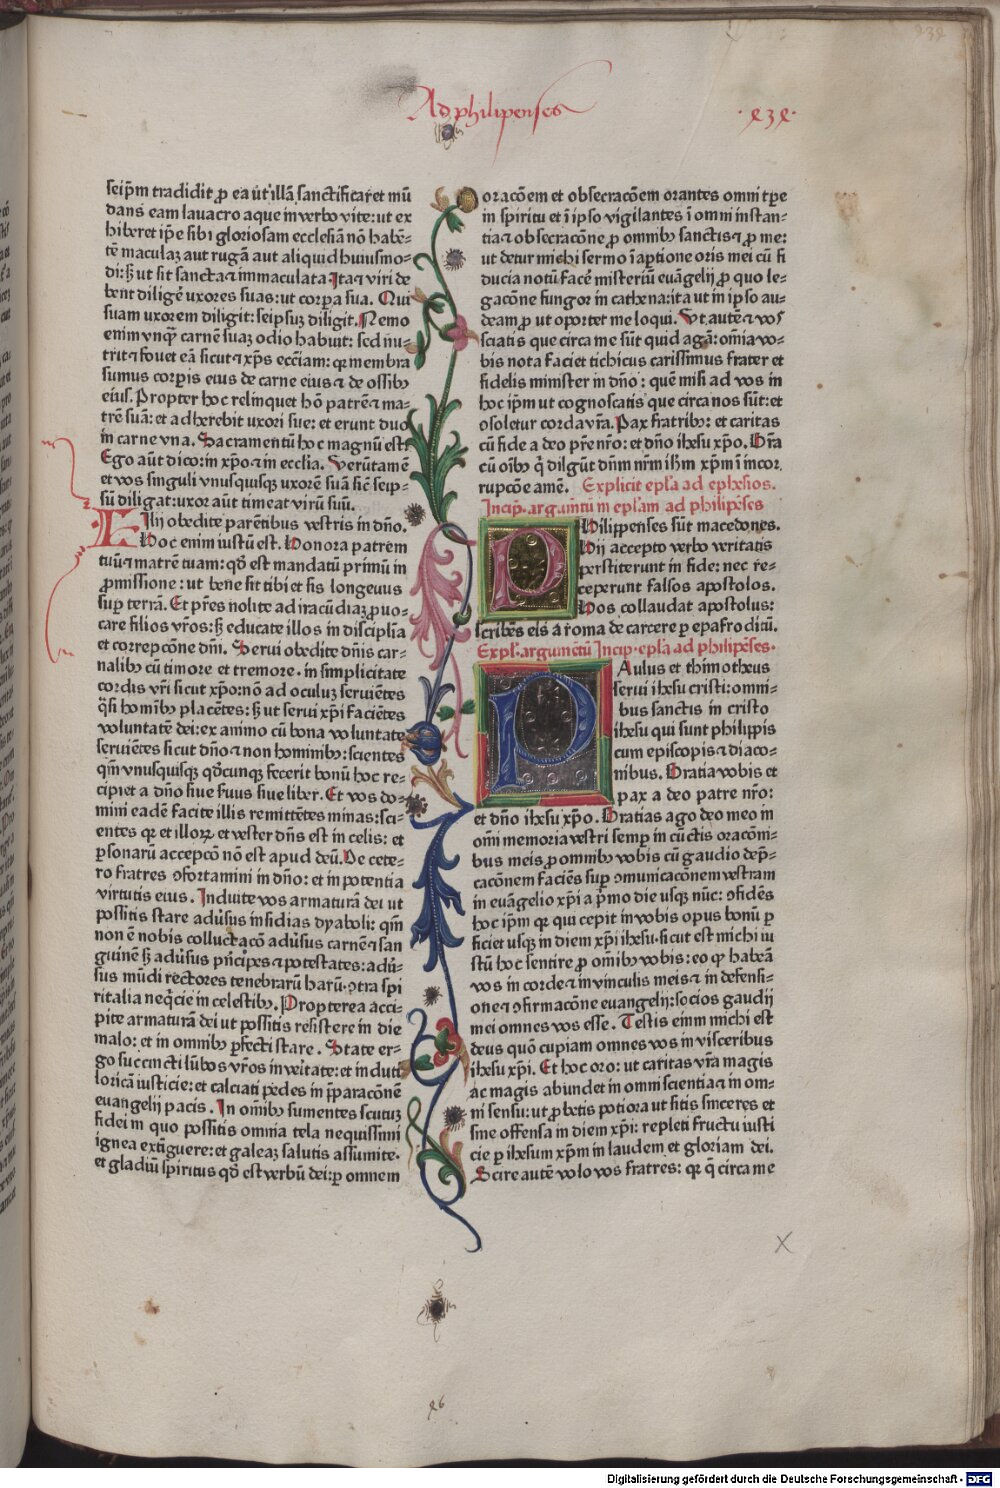 Ad philipenses
·232·
seip̄m tradidit ꝓ ea ut illā sanctificaret mū
dans eam lauacro aque in verbo vite: ut ex
hiberet ip̄e sibi gloriosam ecclesiā nō habē-
tē maculaꝫ aut rugā aut aliquid huiusmo-
di: sꝫ ut sit sancta ⁊ immaculata. Ita ⁊ viri de
bent diligē uxores suas: ut corꝑa sua. Qui
suam uxorem diligit: seipsuꝫ diligit. Nemo
enim vnqꝫ carnē suaꝫ odio habuit: sed nu-
trit ⁊ fouet eā sicut ⁊ xp̄s ecc̄iam: qꝛ membra
sumus corpis eius de carne eius ⁊ de ossibꝫ
eius. Propter hoc relinquet hō patrē ⁊ ma-
trē suā: et adherebit uxori sue: et erunt duo
in carne vna. Sacramentū hoc magnū est:
Ego aūt dico: in xp̄o ⁊ in ecclia. Verūtamē
et vos singuli vnusquisqꝫ uxorē suā sic̄ seip-
sū diligat: uxor aūt timeat virū suū.
Filij obedite parētibus vestris in dn̄o.
Hoc enim iustū est. Honora patrem
tuū ⁊ matrē tuam: qd̄ est mandatū primū in
ꝓmissione: ut bene sit tibi et sis longeuus
suꝑ terrā. Et pr̄es nolite ad iracūdiaꝫ ꝓuo-
care filios vr̄os: sꝫ educate illos in disciplīa
et correpcōne dn̄i. Serui obedite dn̄is car-
nalibꝫ cū timore et tremore. in simplicitate
cordis vr̄i sicut xp̄o: nō ad oculuꝫ seruiētes
q̄si homībꝫ placētes: sꝫ ut serui xp̄i faciētes
voluntatē dei: ex animo cū bona voluntate
seruiētes sicut dn̄o ⁊ non hominibꝫ: scientes
qm̄ vnusquisqꝫ qd̄cunqꝫ fecerit bonū hoc re-
cipiet a dn̄o siue suus siue liber. Et vos do-
mini eadē facite illis remittētes minas: sci-
entes qꝛ et illoꝝ et vester dn̄s est in celis: et
ꝑsonarū accepcō nō est apud deū. De cete-
ro fratres ꝯfortamini in dn̄o: et in potentia
virtutis eius. Induite vos armaturā dei ut
possitis stare adūsus insidias dyaboli: qm̄
non ē nobis colluctacō adūsus carnē ⁊ san
guinē sꝫ adūsus pn̄cipes ⁊ potestates: adū-
sus mūdi rectores tenebrarū harū. ꝯtra spi
ritalia neq̄cie in celestibꝫ. Propterea acci-
pite armaturā dei ut possitis resistere in die
malo: et in omnibꝫ ꝑfecti stare. State er-
go succincti lūbos vr̄os in v̄itate: et induti
loricā iusticie: et calciati pedes in p̄paracōne
euangelij pacis. In om̄ibꝫ sumentes scutuꝫ
fidei in quo possitis omnia tela nequissimi
ignea extīguere: et galeaꝫ salutis assumite.
et gladiū spiritus qd̄ est verbū dei: ꝑ omnem
oracōem et obsecracōem orantes omni tꝑe
in spiritu et ī ipso vigilantes ī omni instan-
tia ⁊ obsecracōne ꝓ omnibꝫ sanctis ⁊ ꝓ me:
ut detur michi sermo ī aptione oris mei cū fi
ducia notū facē misteriū euāgelij ꝓ quo le-
gacōne fungor in cathena: ita ut in ipso au-
deam ꝓ ut oportet me loqui. Vt autē ⁊ vos
sciatis que circa me sūt quid agā: om̄ia vo-
bis nota faciet tichicus carissimus frater et
fidelis minister in dn̄o: quē misi ad vos in
hoc ip̄m ut cognoscatis que circa nos sūt: et
ꝯsoletur corda vr̄a. Pax fratribꝫ: et caritas
cū fide a deo pr̄e nr̄o: et dn̄o ihesu xp̄o. Gr̄a
cū oībꝫ q̄ diligūt dn̄m nr̄m ih̄m xp̄m ī incor
rupcōe amē. Explicit epl̄a ad ephesios.
Incip̄. argumētū in epl̄am ad philipēses
Philippenses sūt macedones.
Hij accepto verbo veritatis
perstiterunt in fide: nec re-
ceperunt falsos apostolos.
Hos collaudat apostolus:
scribēs eis a roma de carcere ꝑ epafroditū.
Expl̄. argumētū Incip. epl̄a ad philipēses.
Paulus et thimotheus
serui ihesu cristi: omni-
bus sanctis in cristo
ihesu qui sunt philippis
cum episcopis ⁊ diaco-
nibus. Gratia vobis et
pax a deo patre nr̄o:
et dn̄o ihesu xp̄o. Gratias ago deo meo in
om̄i memoria vestri semꝑ in cūctis oracōni-
bus meis ꝓ omnibꝫ vobis cū gaudio dep̄-
cacōnem faciēs suꝑ ꝯmunicacōnem vestram
in euāgelio xp̄i a p̄mo die usqꝫ nūc: ꝯfidēs
hoc ip̄m qꝛ qui cepit in vobis opus bonū ꝑ
ficiet usqꝫ in diem xp̄i ihesu. sicut est michi iu
stū hoc sentire ꝓ om̄ibꝫ vobis: eo qꝫ habeā
vos in corde ⁊ in vinculis meis ⁊ in defensi-
one ⁊ ꝯfirmacōne euangelij: socios gaudij
mei omnes vos esse. Testis enim michi est
deus quō cupiam omnes vos in visceribus
ihesu xp̄i. Et hoc oro: ut caritas vr̄a magis
ac magis abundet in omni scientia ⁊ in om-
ni sensu: ut ꝓbetis potiora ut sitis sinceres et
sine offensa in diem xp̄i: repleti fructu iusti
cie ꝑ ihesum xp̄m in laudem et gloriam dei.
Scire autē volo vos fratres: qꝛ q̄ circa me
Digitalisierung gefördert durch die Deutsche Forschungsgemeinschaft - DFG